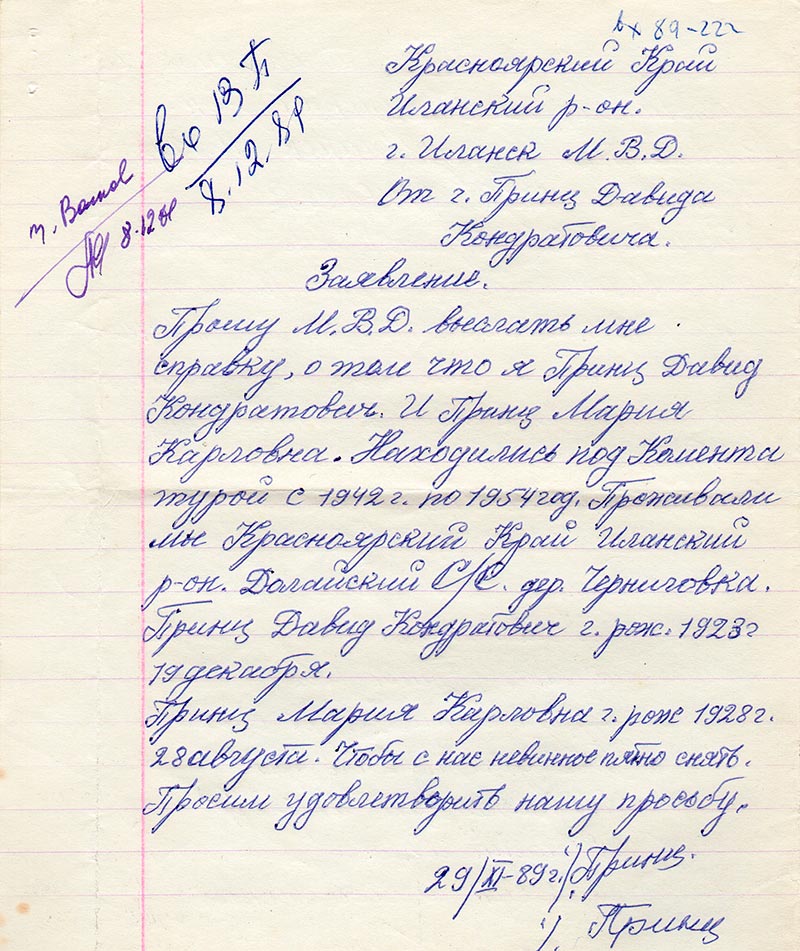 вх 89-222
Красноярский Край
Иланский р-он.
г. Иланск М.В.Д.
От г. Принц Давида
Кондратовича.
вх 13 П
8.12.89
т. Волков
8.12.89
Заявление.
Прошу М.В.Д. выслать мне
справку, о том что я Принц Давид
Кондратович. И Принц Мария
Карловна. Находились под Комента
турой с 1942 г. по 1954 год. Проживали
мы Красноярский Край Иланский
р-он. Далайский С/С. дер. Черниговка.
Принц Давид Кондратович г. рож. 1923 г
19 декабря.
Принц Мария Карловна г. рож 1928 г.
28 августа. Чтобы с нас невинное пятно снять.
Просим удовлетворить нашу прособу.
29/XI-89 г. Принц.
Принц